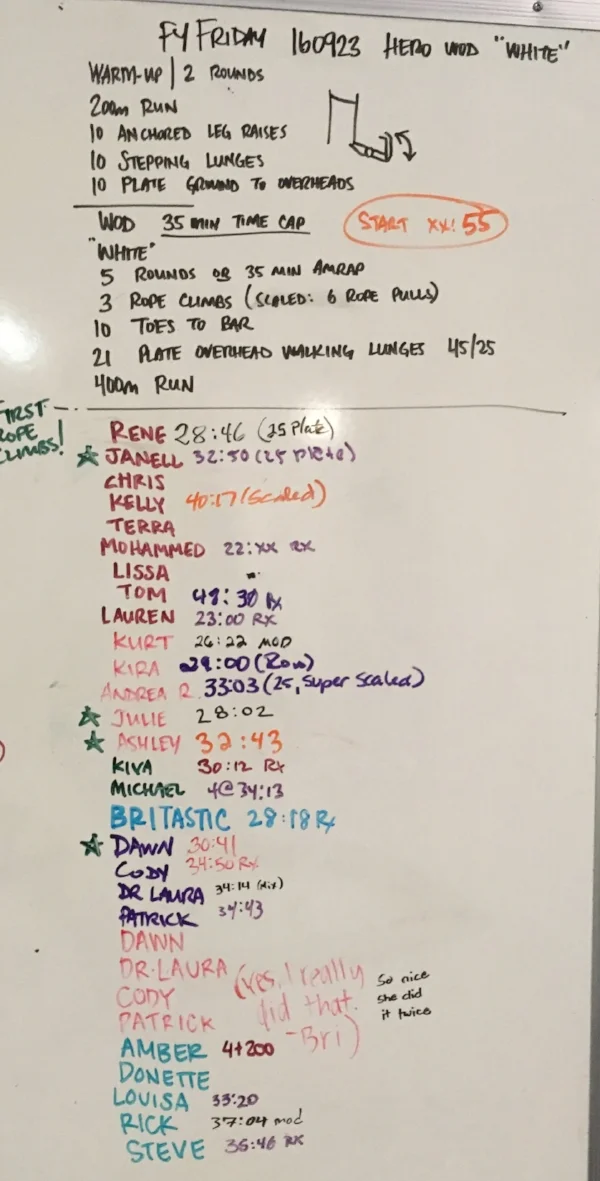 FY FRIDAY 160923 HERO WOD "WHITE"
WARM-UP | 2 ROUNDS
200m RUN
10 ANCHORED LEG RAISES
10 STEPPING LUNGES
10 PLATE GROUND TO OVERHEADS
WOD 35 MIN TIME CAP
START XX:55
"WHITE"
5 ROUNDS OR 35 MIN AMRAP
3 ROPE CLIMBS (SCALED: 6 ROPE PULLS)
10 TOES TO BAR
21 PLATE OVERHEAD WALKING LUNGES 45/25
400m RUN
FIRST
ROPE
CLIMBS!
RENE 28:46 (25 Plate)
JANELL 32:50 (25 Plate)
CHRIS
KELLY 40:17 (Scaled)
TERRA
MOHAMMED 22:XX RX
LISSA
TOM 48:30 Rx
LAUREN 23:00 RX
KURT 26:22 MOD
KIRA 29:00 (Row)
ANDREA R. 33:03 (25, Super Scaled)
JULIE 28:02
ASHLEY 32:43
KIVA 30:12 Rx
MICHAEL 4@34:13
BRITASTIC 28:18 Rx
DAWN 30:41
CODY 34:50 RX
DR LAURA 34:14
PATRICK 34:43
DAWN
DR. LAURA (yes, I really
CODY did that.
PATRICK -Bri)
So nice
she did
it twice
AMBER 4+200
DONETTE
LOUISA 33:20
RICK 37:04 mod
STEVE 35:46 RX